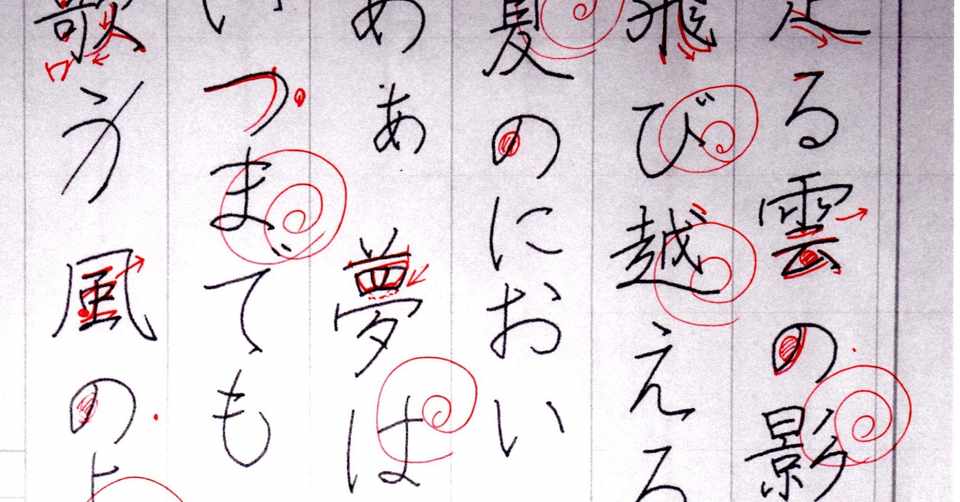 走る雲の影
飛び越える
夏のにおい
あぁ 夢は
いつまでも
歌う 風のよ